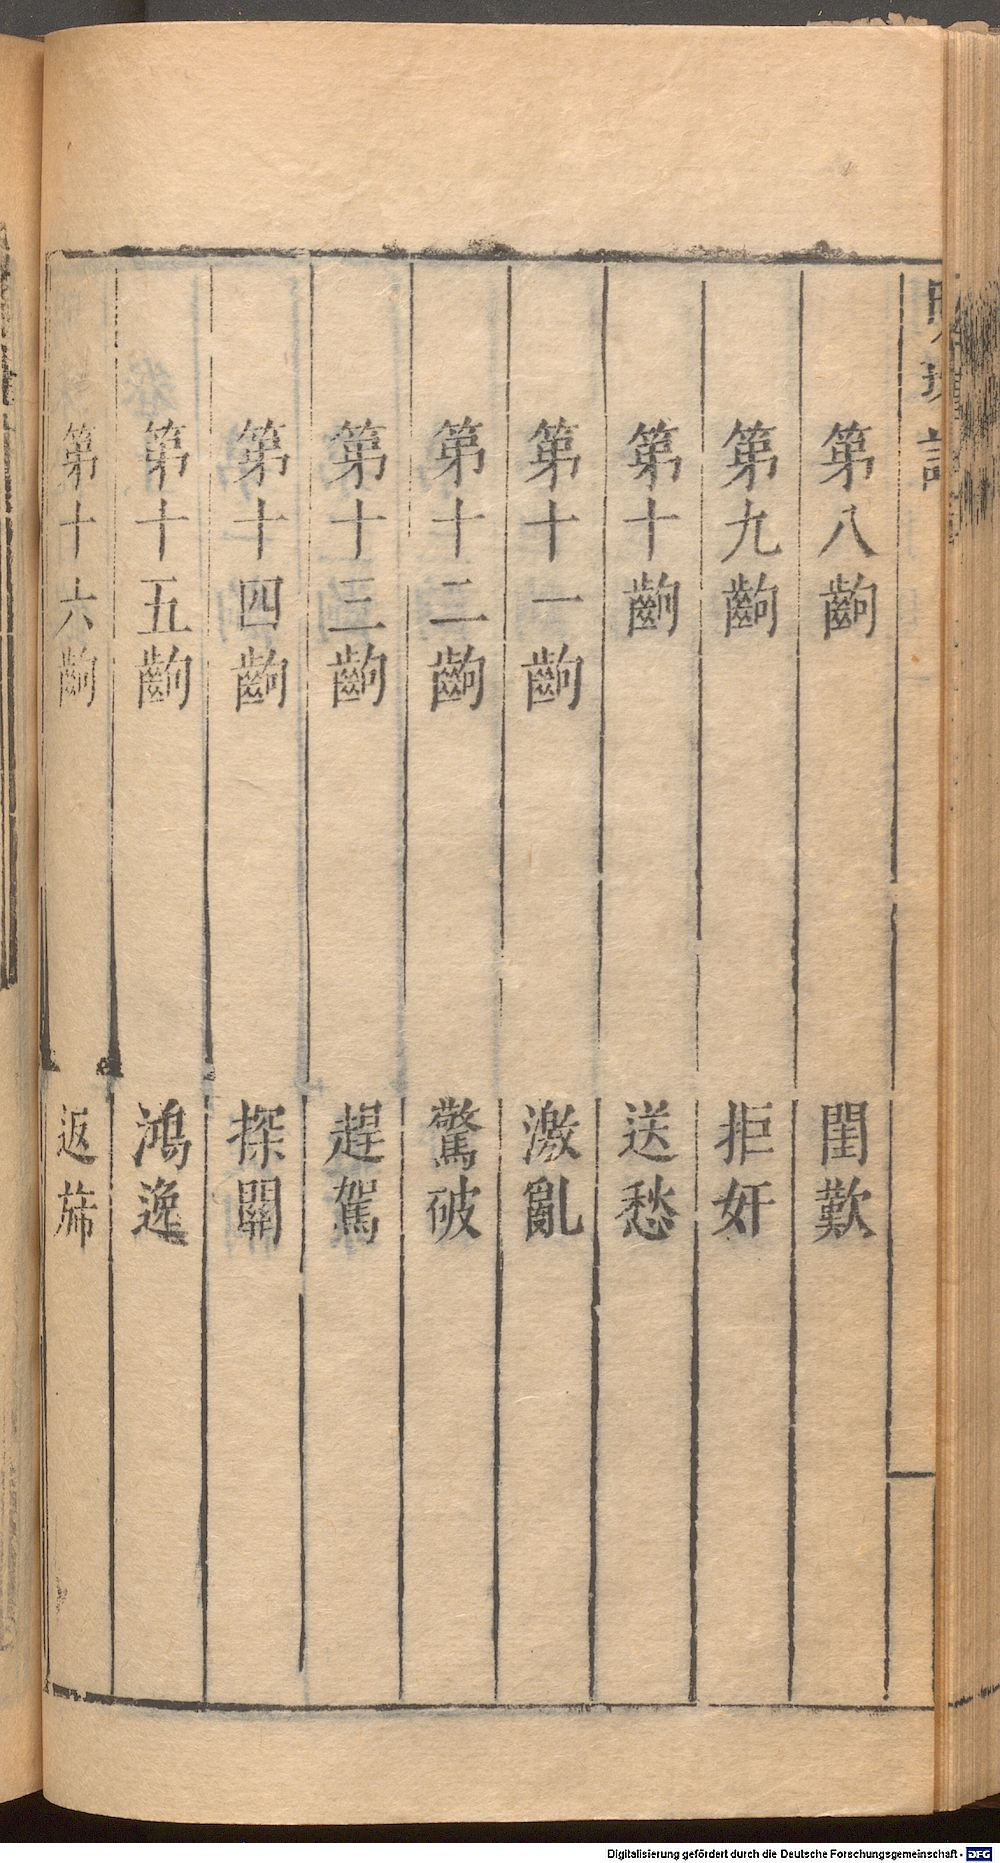 明珠記
第八齣 閨歎
第九齣 拒奸
第十齣 送愁
第十一齣 激亂
第十二齣 驚破
第十三齣 趕駕
第十四齣 探關
第十五齣 鴻逸
第十六齣 返旆
Digitalisierung gefördert durch die Deutsche Forschungsgemeinschaft - DFG